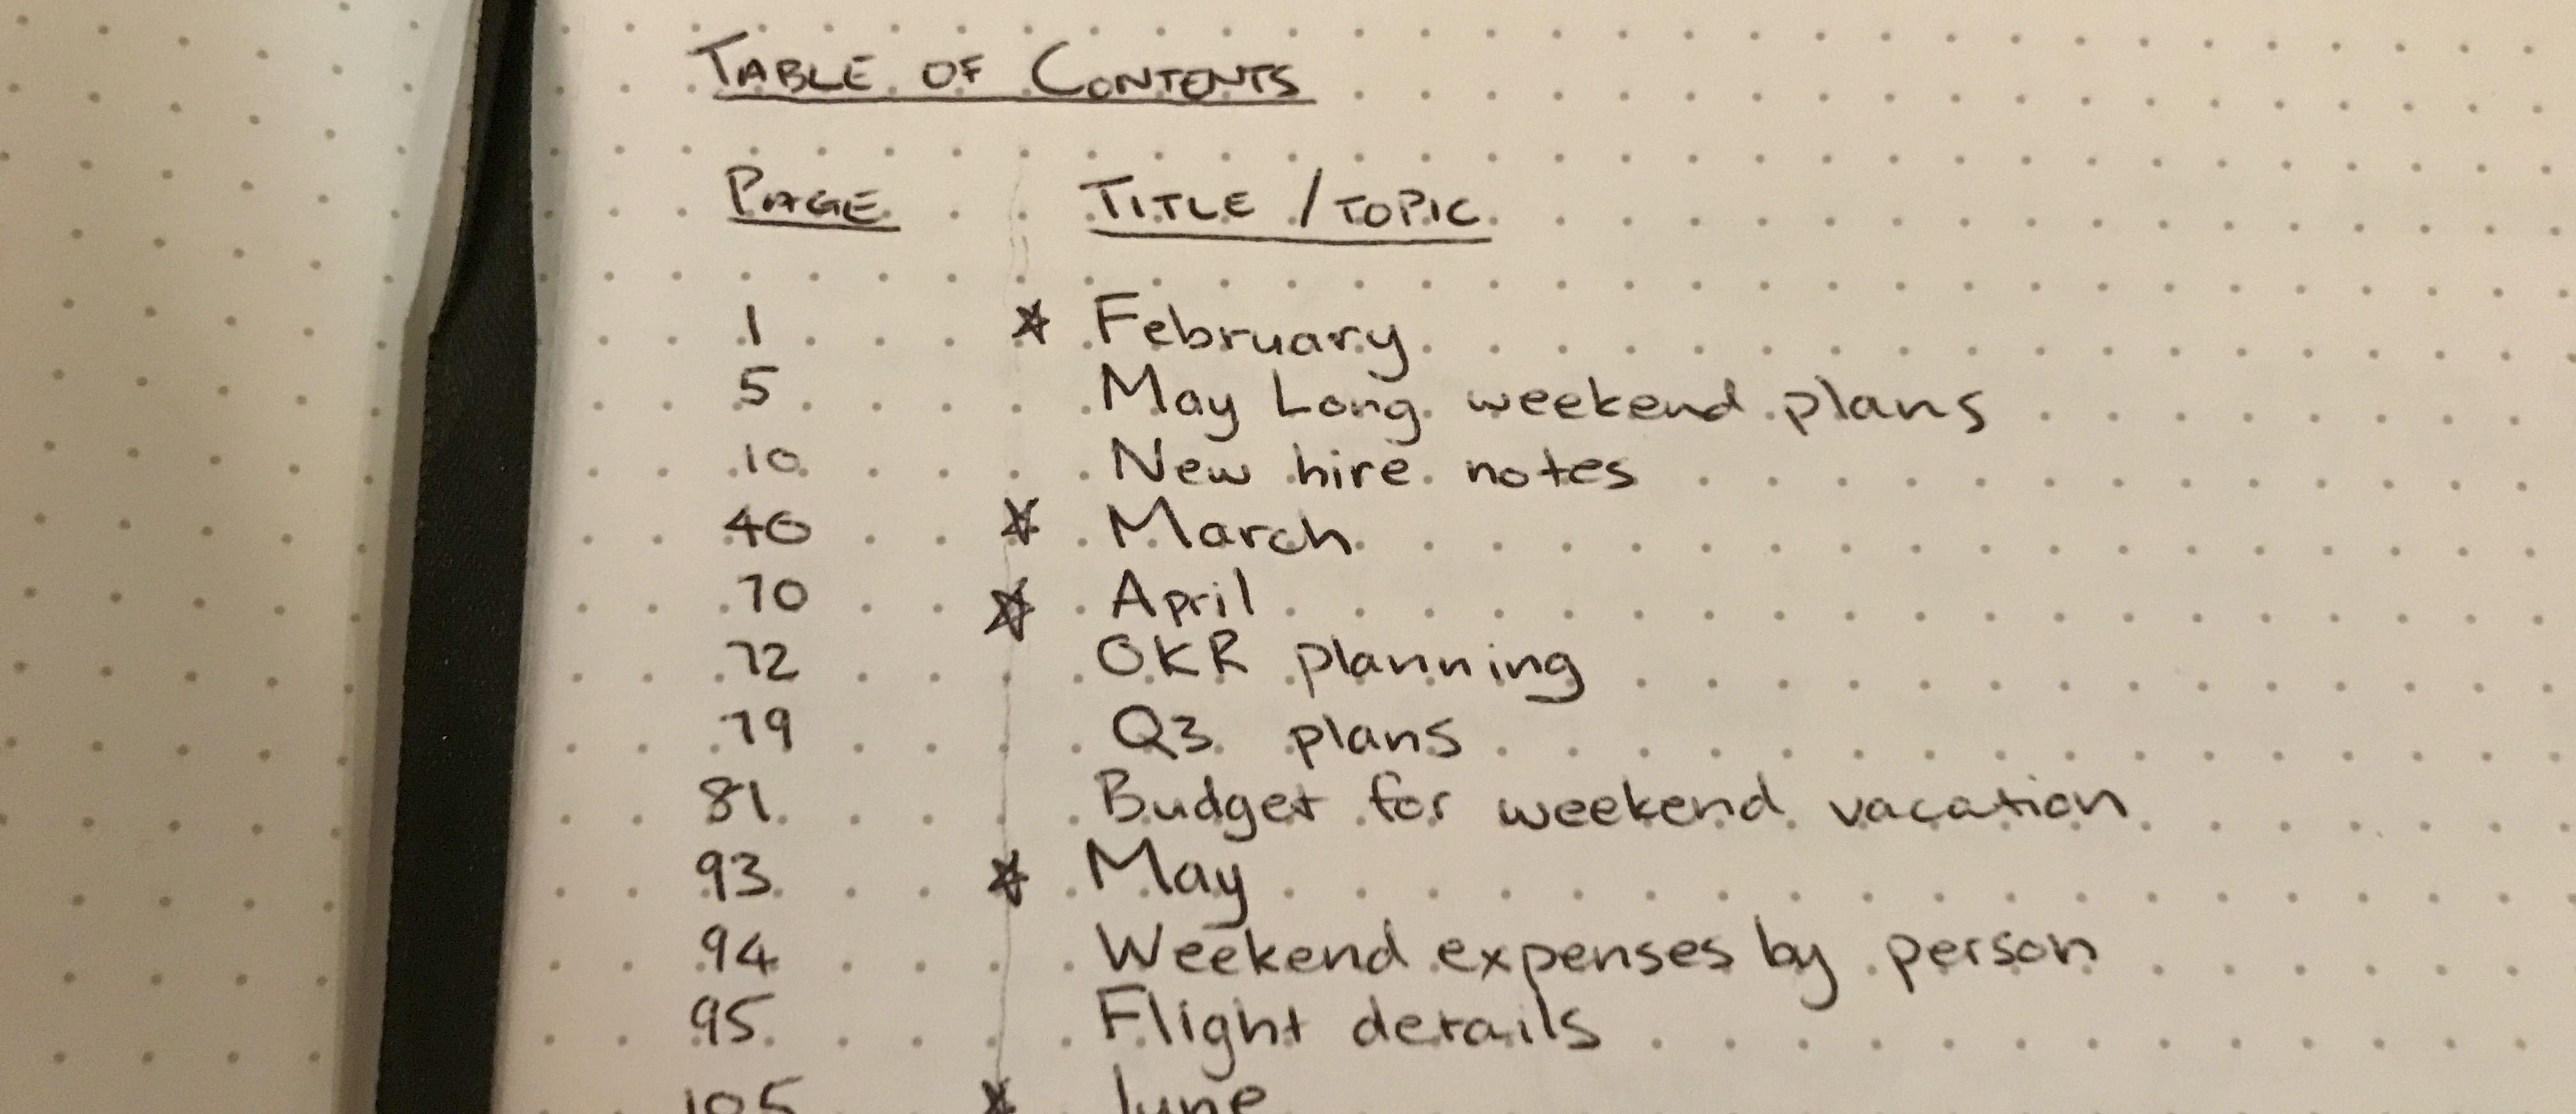 TABLE OF CONTENTS
PAGE TITLE / TOPIC
1 ☆ February
5 May Long weekend plans
10 New hire notes
40 ☆ March
70 ☆ April
72 OKR planning
79 Q3 plans
81 Budget for weekend vacation
93 ☆ May
94 Weekend expenses by person
95 Flight details
105 ☆ June